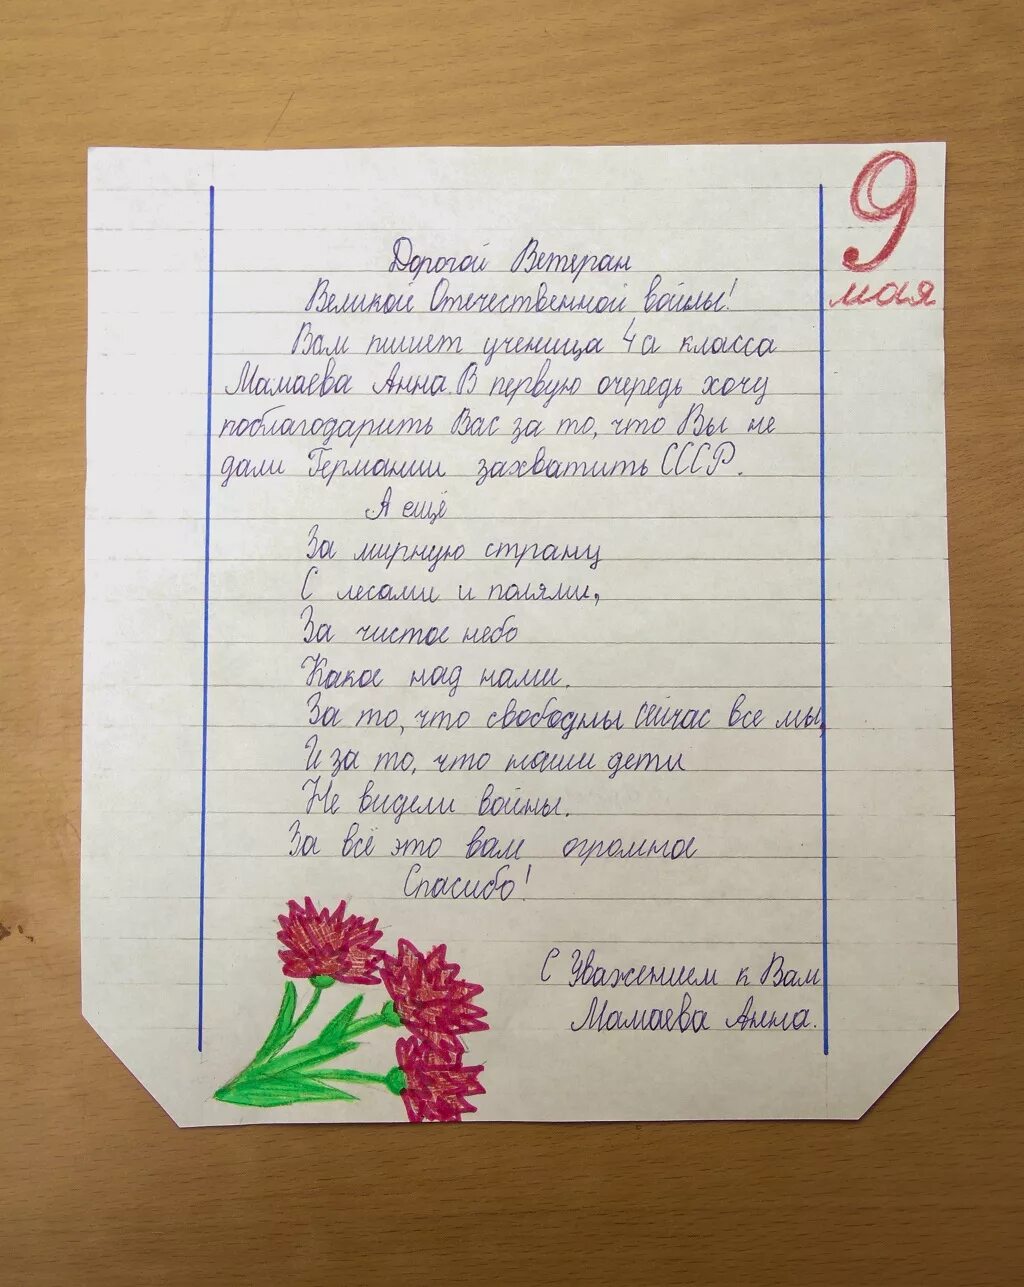 9
мая
Дорогой Ветеран
Великой Отечественной войны!
Вам пишет ученица 4а класса
Мамаева Анна. В первую очередь хочу
поблагодарить Вас за то, что Вы не
дали Германии захватить СССР.
А ещё
За мирную страну
С лесами и полями,
За чистое небо
Какое над нами.
За то, что свободны сейчас все мы,
И за то, что наши дети
Не видели войны.
За всё это вам огромное
Спасибо!
С Уважением к Вам
Мамаева Анна.